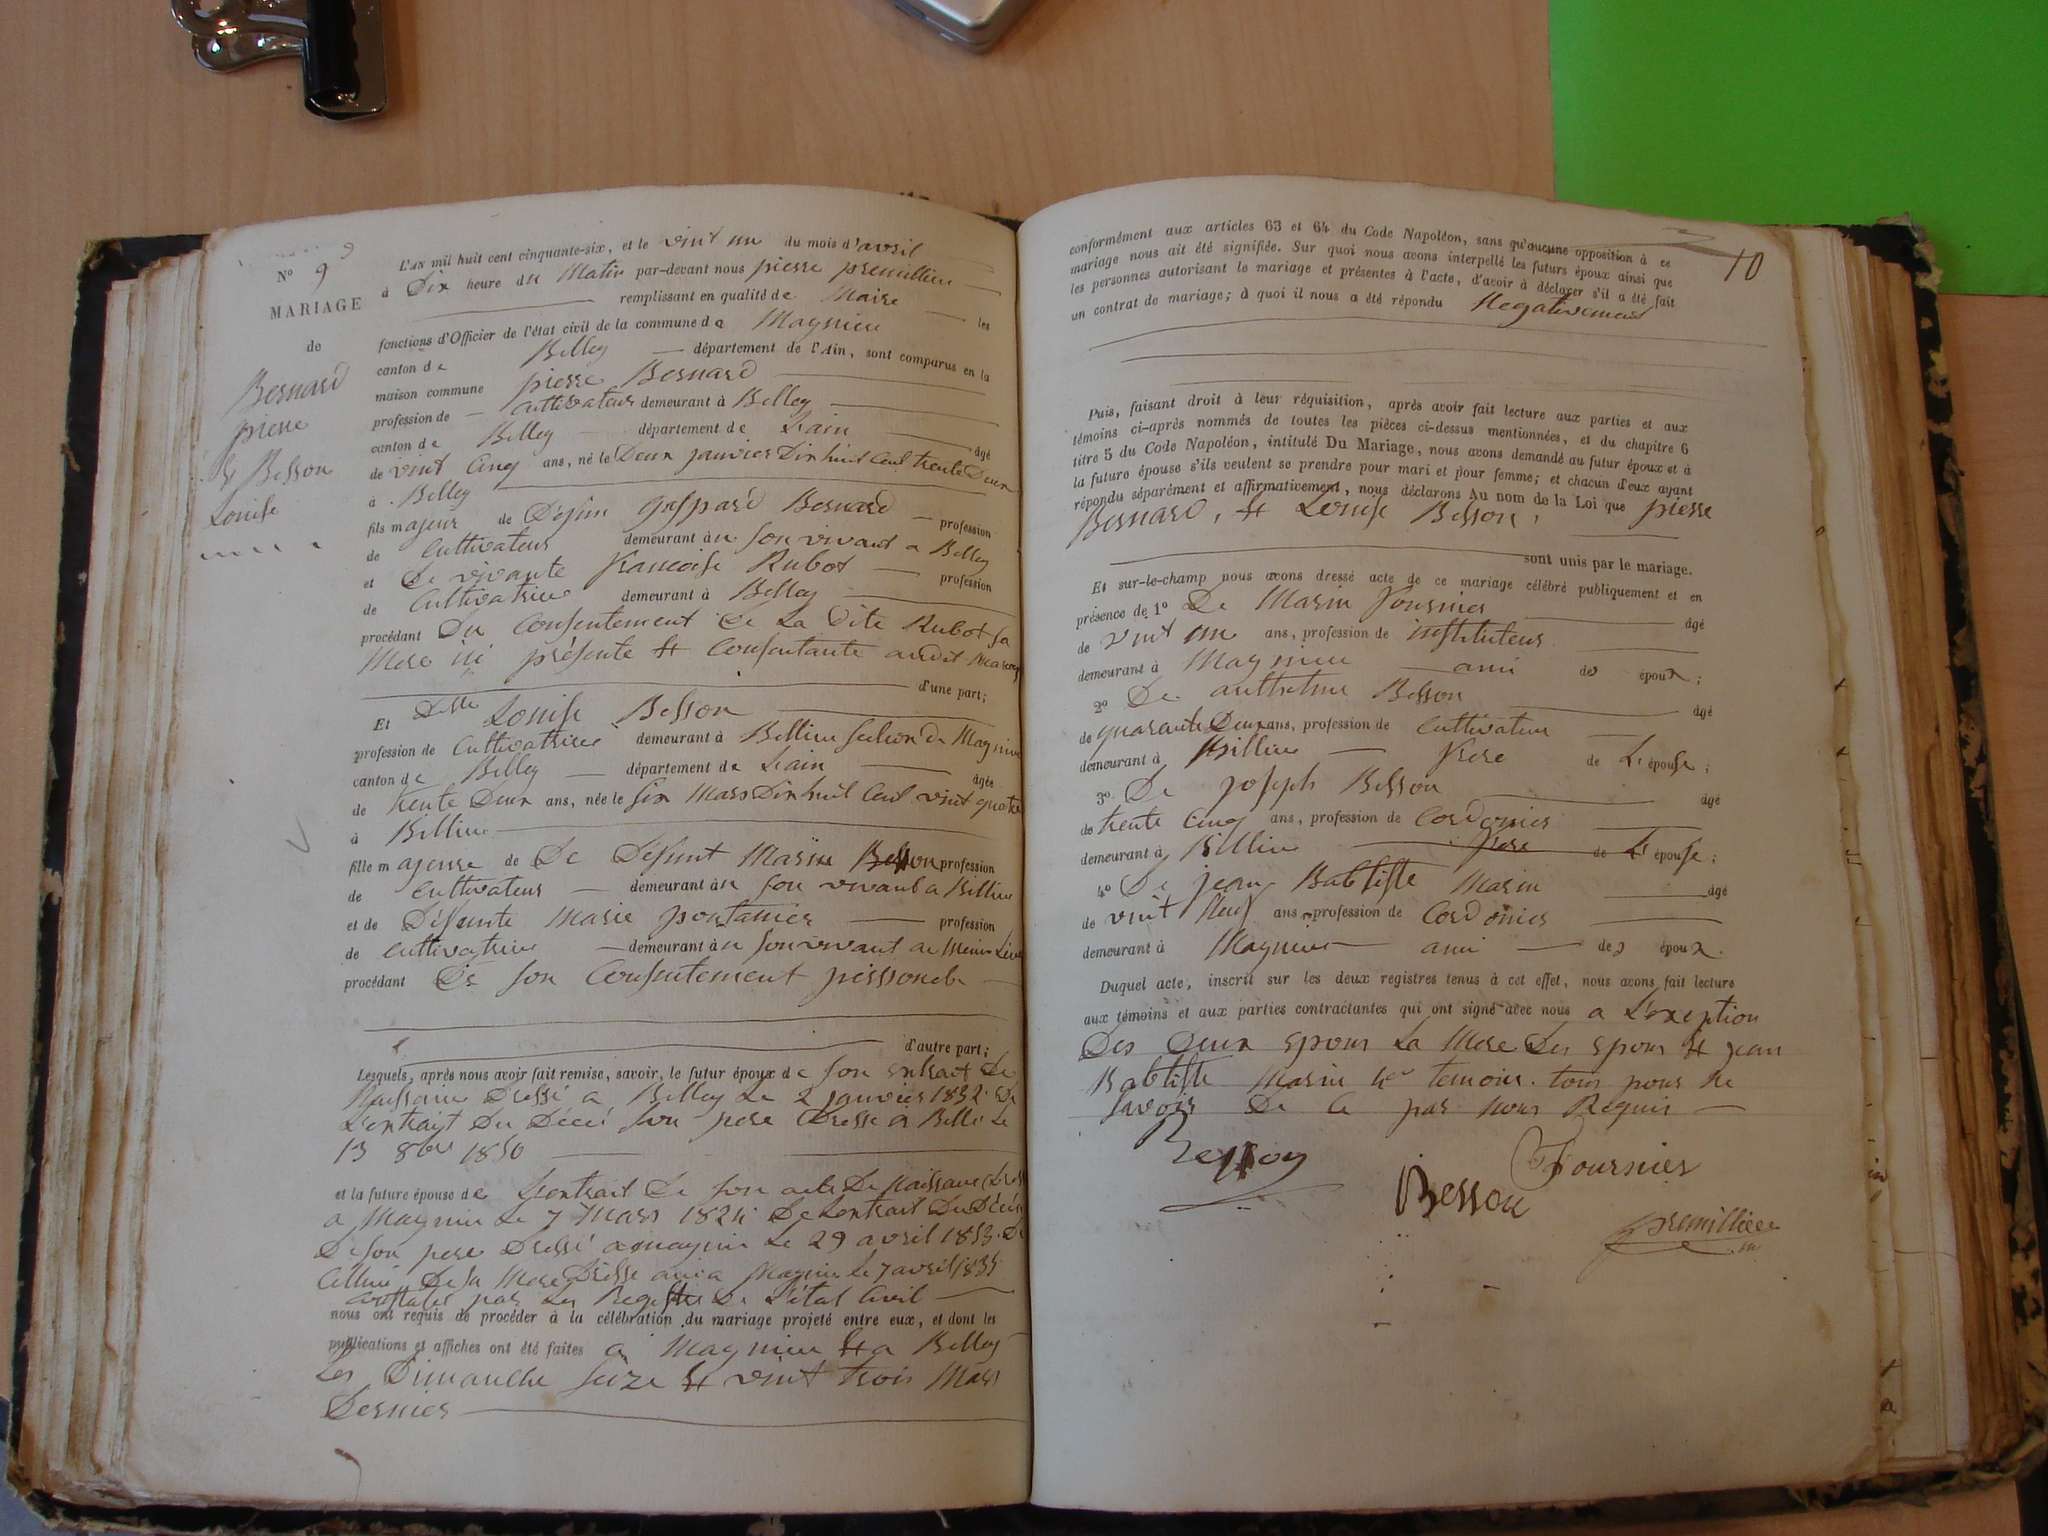 N° 9
MARIAGE
de
Bernard
pierre
& Besson
Louise
L'an mil huit cent cinquante-six, et le vint un du mois d'avril
à Dix heure du Matin par-devant nous pierre premillieu
remplissant en qualité de Maire les
fonctions d'Officier de l'état civil de la commune de Magnieu
canton de Belley département de l'Ain, sont comparus en la
maison commune pierre Bernard
profession de cultivateur demeurant à Belley
canton de Belley département de Lain âgé
de vint cinq ans, né le Deux janvier Dix huit cent trente Deux
à Belley
fils majeur de Défun gaspard Bernard profession
de cultivateur demeurant àn son vivant a Belley
et De vivante francoise Rubot profession
de Cultivatrice demeurant à Belley
procédant Du Consentement De La Dite Rubot sa
Mere ici présente & Consentante audit
d'une part;
Et Delle Louise Besson
profession de Cultivatrice demeurant à Billieu section de Magnieu
canton de Belley département de Lain âgée
de trente Deux ans, née le six Mars Dix huit Cent vint quatre
à Billieu
fille majeure de De Défunt Marin Besson profession
de Cultivateur demeurant àn son vivant a Billieu
et de Défunte Marie pontanier profession
de Cultivatrice demeurant àn son vivant au Meme Lieu
procédant De son Consentement personel
d'autre part;
Lesquels, après nous avoir fait remise, savoir, le futur époux de son extrait De
Naissance Dressé a Belley Le 2 janvier 1832. De
L'extrait Du Décé son pere Dressé a Belle Le
13 8bre 1850
et la future épouse de Lextrait De son acte De Naissance
a Magnieu Le 7 Mars 1824 De Lextrait Du Décés
De son pere Dressé a magnieu Le 29 avril 1853. De
Cellui De sa Mere Dressé aussi a Magnieu le 7 avril 1835
constatés par Les Registres De L'état Civil
nous ont requis de procéder à la célébration du mariage projeté entre eux, et dont les
publications et affiches ont été faites a Magnieu & a Belley
Les Dimanche seize & vint trois Mars
Dernier
10
conformément aux articles 63 et 64 du Code Napoléon, sans qu'aucune opposition à ce
mariage nous ait été signifiée. Sur quoi nous avons interpellé les futurs époux ainsi que
les personnes autorisant le mariage et présentes à l'acte, d'avoir à déclarer s'il a été fait
un contrat de mariage; à quoi il nous a été répondu Negativement
Puis, faisant droit à leur réquisition, après avoir fait lecture aux parties et aux
témoins ci-après nommés de toutes les pièces ci-dessus mentionnées, et du chapitre 6
titre 5 du Code Napoléon, intitulé Du Mariage, nous avons demandé au futur époux et à
la future épouse s'ils veulent se prendre pour mari et pour femme; et chacun d'eux ayant
répondu séparément et affirmativement, nous déclarons Au nom de la Loi que pierre
Bernard, & Louise Besson,
sont unis par le mariage.
Et sur-le-champ nous avons dressé acte de ce mariage célébré publiquement et en
présence de 1° De Marin fournier âgé
de vint un ans, profession de instituteur
demeurant à Magnieu ami des époux;
2° De anthelme Besson âgé
de quarante Deux ans, profession de Cultivateur
demeurant à Billieu frere de L'épouse;
3° De joseph Besson âgé
de trente cinq ans, profession de Cordonier
demeurant à Billieu frere de L'épouse;
4° De jean Babtiste Marin âgé
de vint Neuf ans, profession de Cordonier
demeurant à Magnieu ami des époux.
Duquel acte, inscrit sur les deux registres tenus à cet effet, nous avons fait lecture
aux témoins et aux parties contractantes qui ont signé avec nous a L'exeption
Des Deux epoux La Mere Des epoux & jean
Babtiste Marin 4e temoin. tous pour Ne
savoir De Ce par Nous Requis
Besson
Fournier
Besson
premillieu